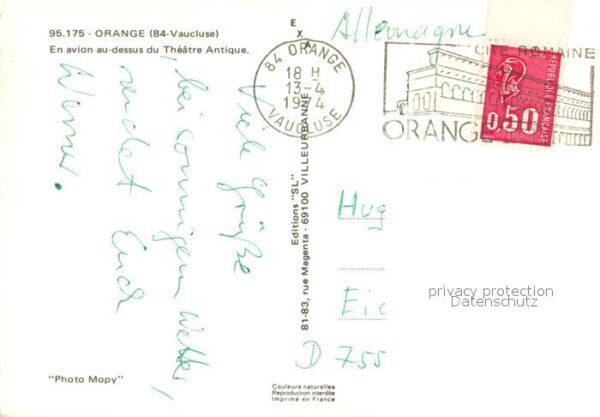 95.175 - ORANGE (84-Vaucluse)
En avion au-dessus du Théâtre Antique.
Viele Grüße
bei sonnigem Wetter,
sendet Euch
Werner.
"Photo Mopy"
EX
Editions "SL"
81-83, rue Magenta - 69100 VILLEURBANNE
Couleurs naturelles
Reproduction interdite
Imprimé en France
84 ORANGE
18 H
13-4
1974
VAUCLUSE
CITE ROMAINE
ORANGE
REPUBLIQUE FRANÇAISE
0,50
Allemagne
Hug
Eic
D 755
privacy protection
Datenschutz